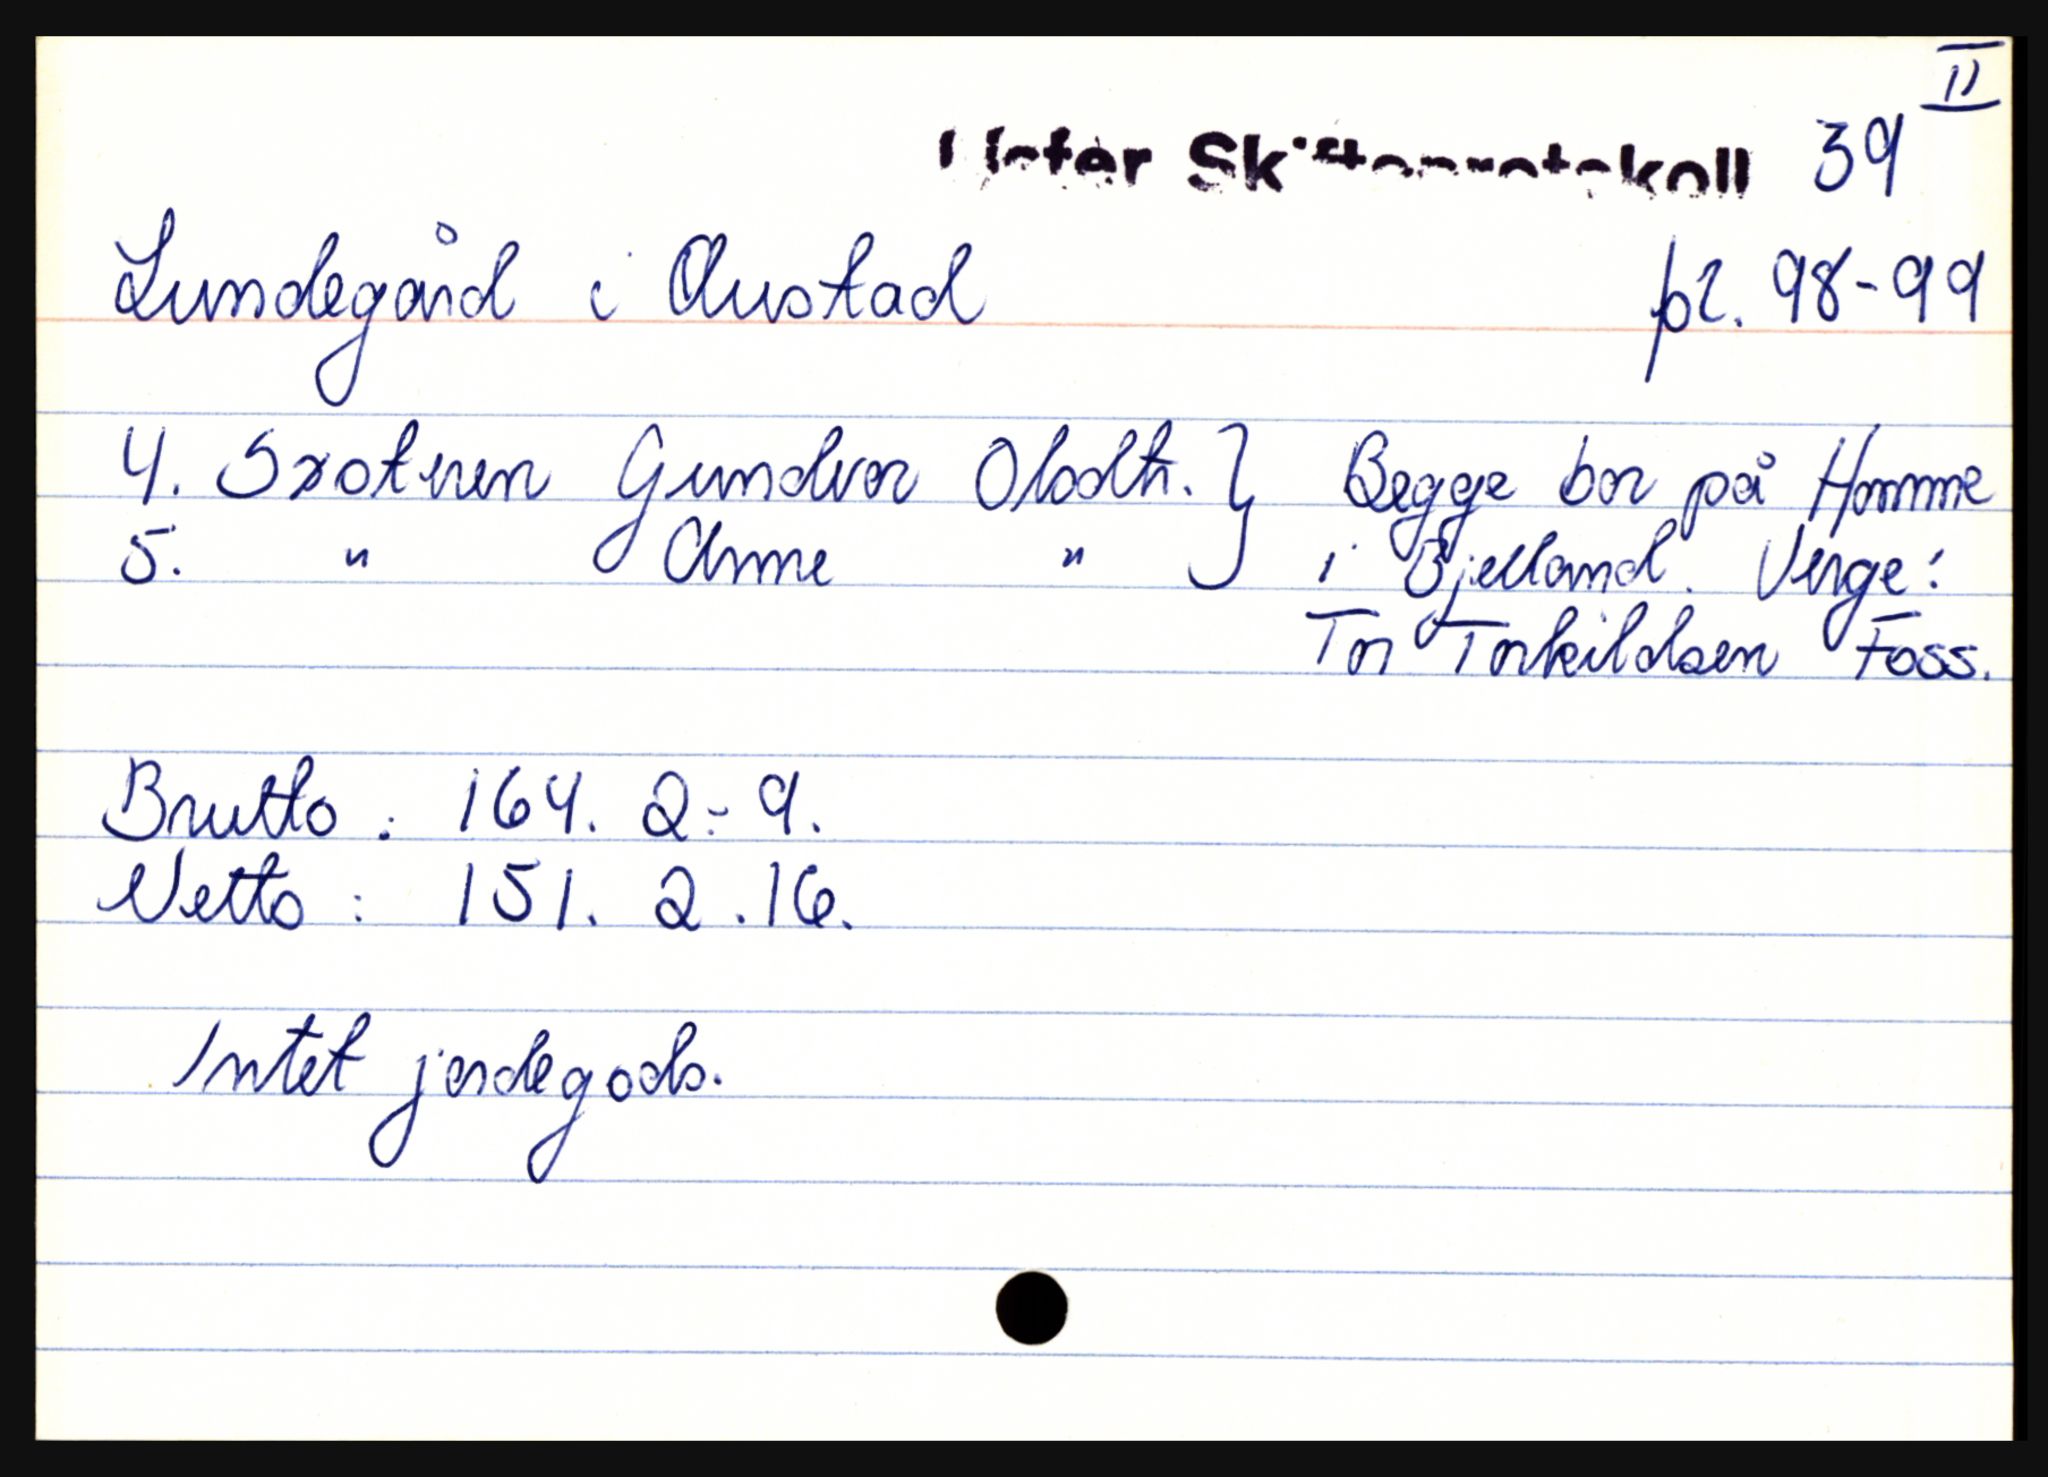 II
Lister Skifteprotokoll 39
Lundegård i Austad pr. 98-99
4. Søsteren Gundvor Olsdtr. } Begge bor på Homme
5. " Anne " i Bjelland. Verge:
Tor Torkildsen Foss.
Brutto: 164. 2. 9.
Netto: 151. 2. 16.
Intet jordegods.